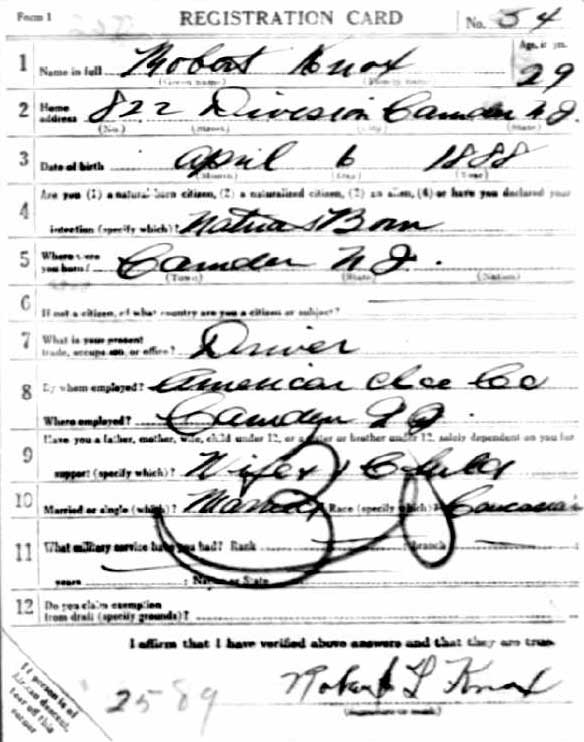 Form 1 REGISTRATION CARD No. 54
1 Name in full Robert Knox Age, in yrs. 29
(Given name) (Family name)
2 Home address 822 Division Camden N.J.
(No.) (Street) (City) (State)
3 Date of birth April 6 1888
(Month) (Day) (Year)
4 Are you (1) a natural born citizen, (2) a naturalized citizen, (3) an alien, (4) or have you declared your
intention (specify which)? Natural Born
5 Where were you born? Camden N.J.
(Town) (State) (Nation)
6 If not a citizen, of what country are you a citizen or subject?
7 What is your present trade, occupation, or office? Driver
8 By whom employed? American Ice Co
Where employed? Camden N.J.
9 Have you a father, mother, wife, child under 12, or a sister or brother under 12, solely dependent on you for
support (specify which)? Wife & Child
10 Married or single (which)? Married Race (specify which)? Caucasian
11 What military service have you had? Rank branch
years Nation or State
12 Do you claim exemption from draft (specify grounds)?
I affirm that I have verified above answers and that they are true.
Robert L Knox
(Signature or mark)
If person is of African descent, tear off this corner
2589